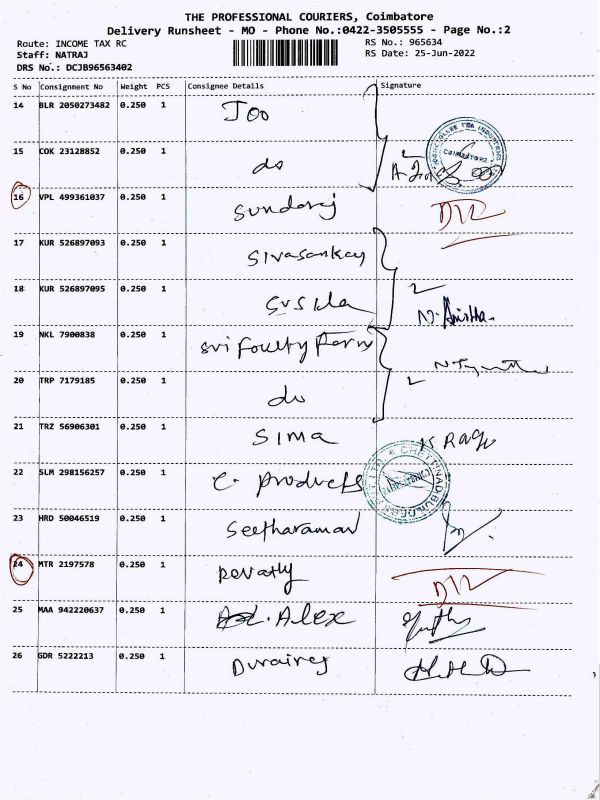 THE PROFESSIONAL COURIERS, Coimbatore
Delivery Runsheet - MO - Phone No.:0422-3505555 - Page No.:2
Route: INCOME TAX RC RS No.: 965634
Staff: NATRAJ RS Date: 25-Jun-2022
DRS No.: DCJB96563402
S No Consignment No Weight PCS Consignee Details Signature
14 BLR 2050273482 0.250 1 Too
15 COK 23128852 0.250 1 do
COIMBATORE
16 VPL 499361037 0.250 1 Sundaraj
17 KUR 526897093 0.250 1 Sivasankar
18 KUR 526897095 0.250 1
19 NKL 7900838 0.250 1 Sri Foulty Farm
20 TRP 7179185 0.250 1 do
21 TRZ 56906301 0.250 1 Sima K Ragu
22 SLM 298156257 0.250 1 C. Products
23 HRD 50046519 0.250 1 Seetharaman
24 MTR 2197578 0.250 1 Revathy
25 MAA 942220637 0.250 1 Alex
26 GDR 5222213 0.250 1 Durairaj